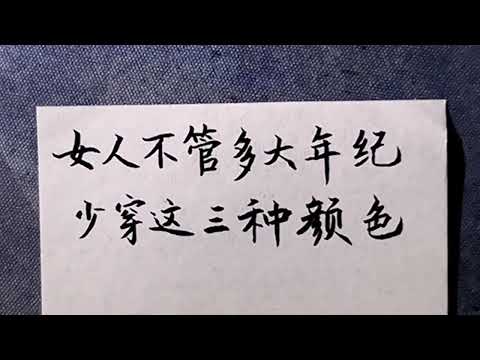 女人不管多大年纪
少穿这三种颜色